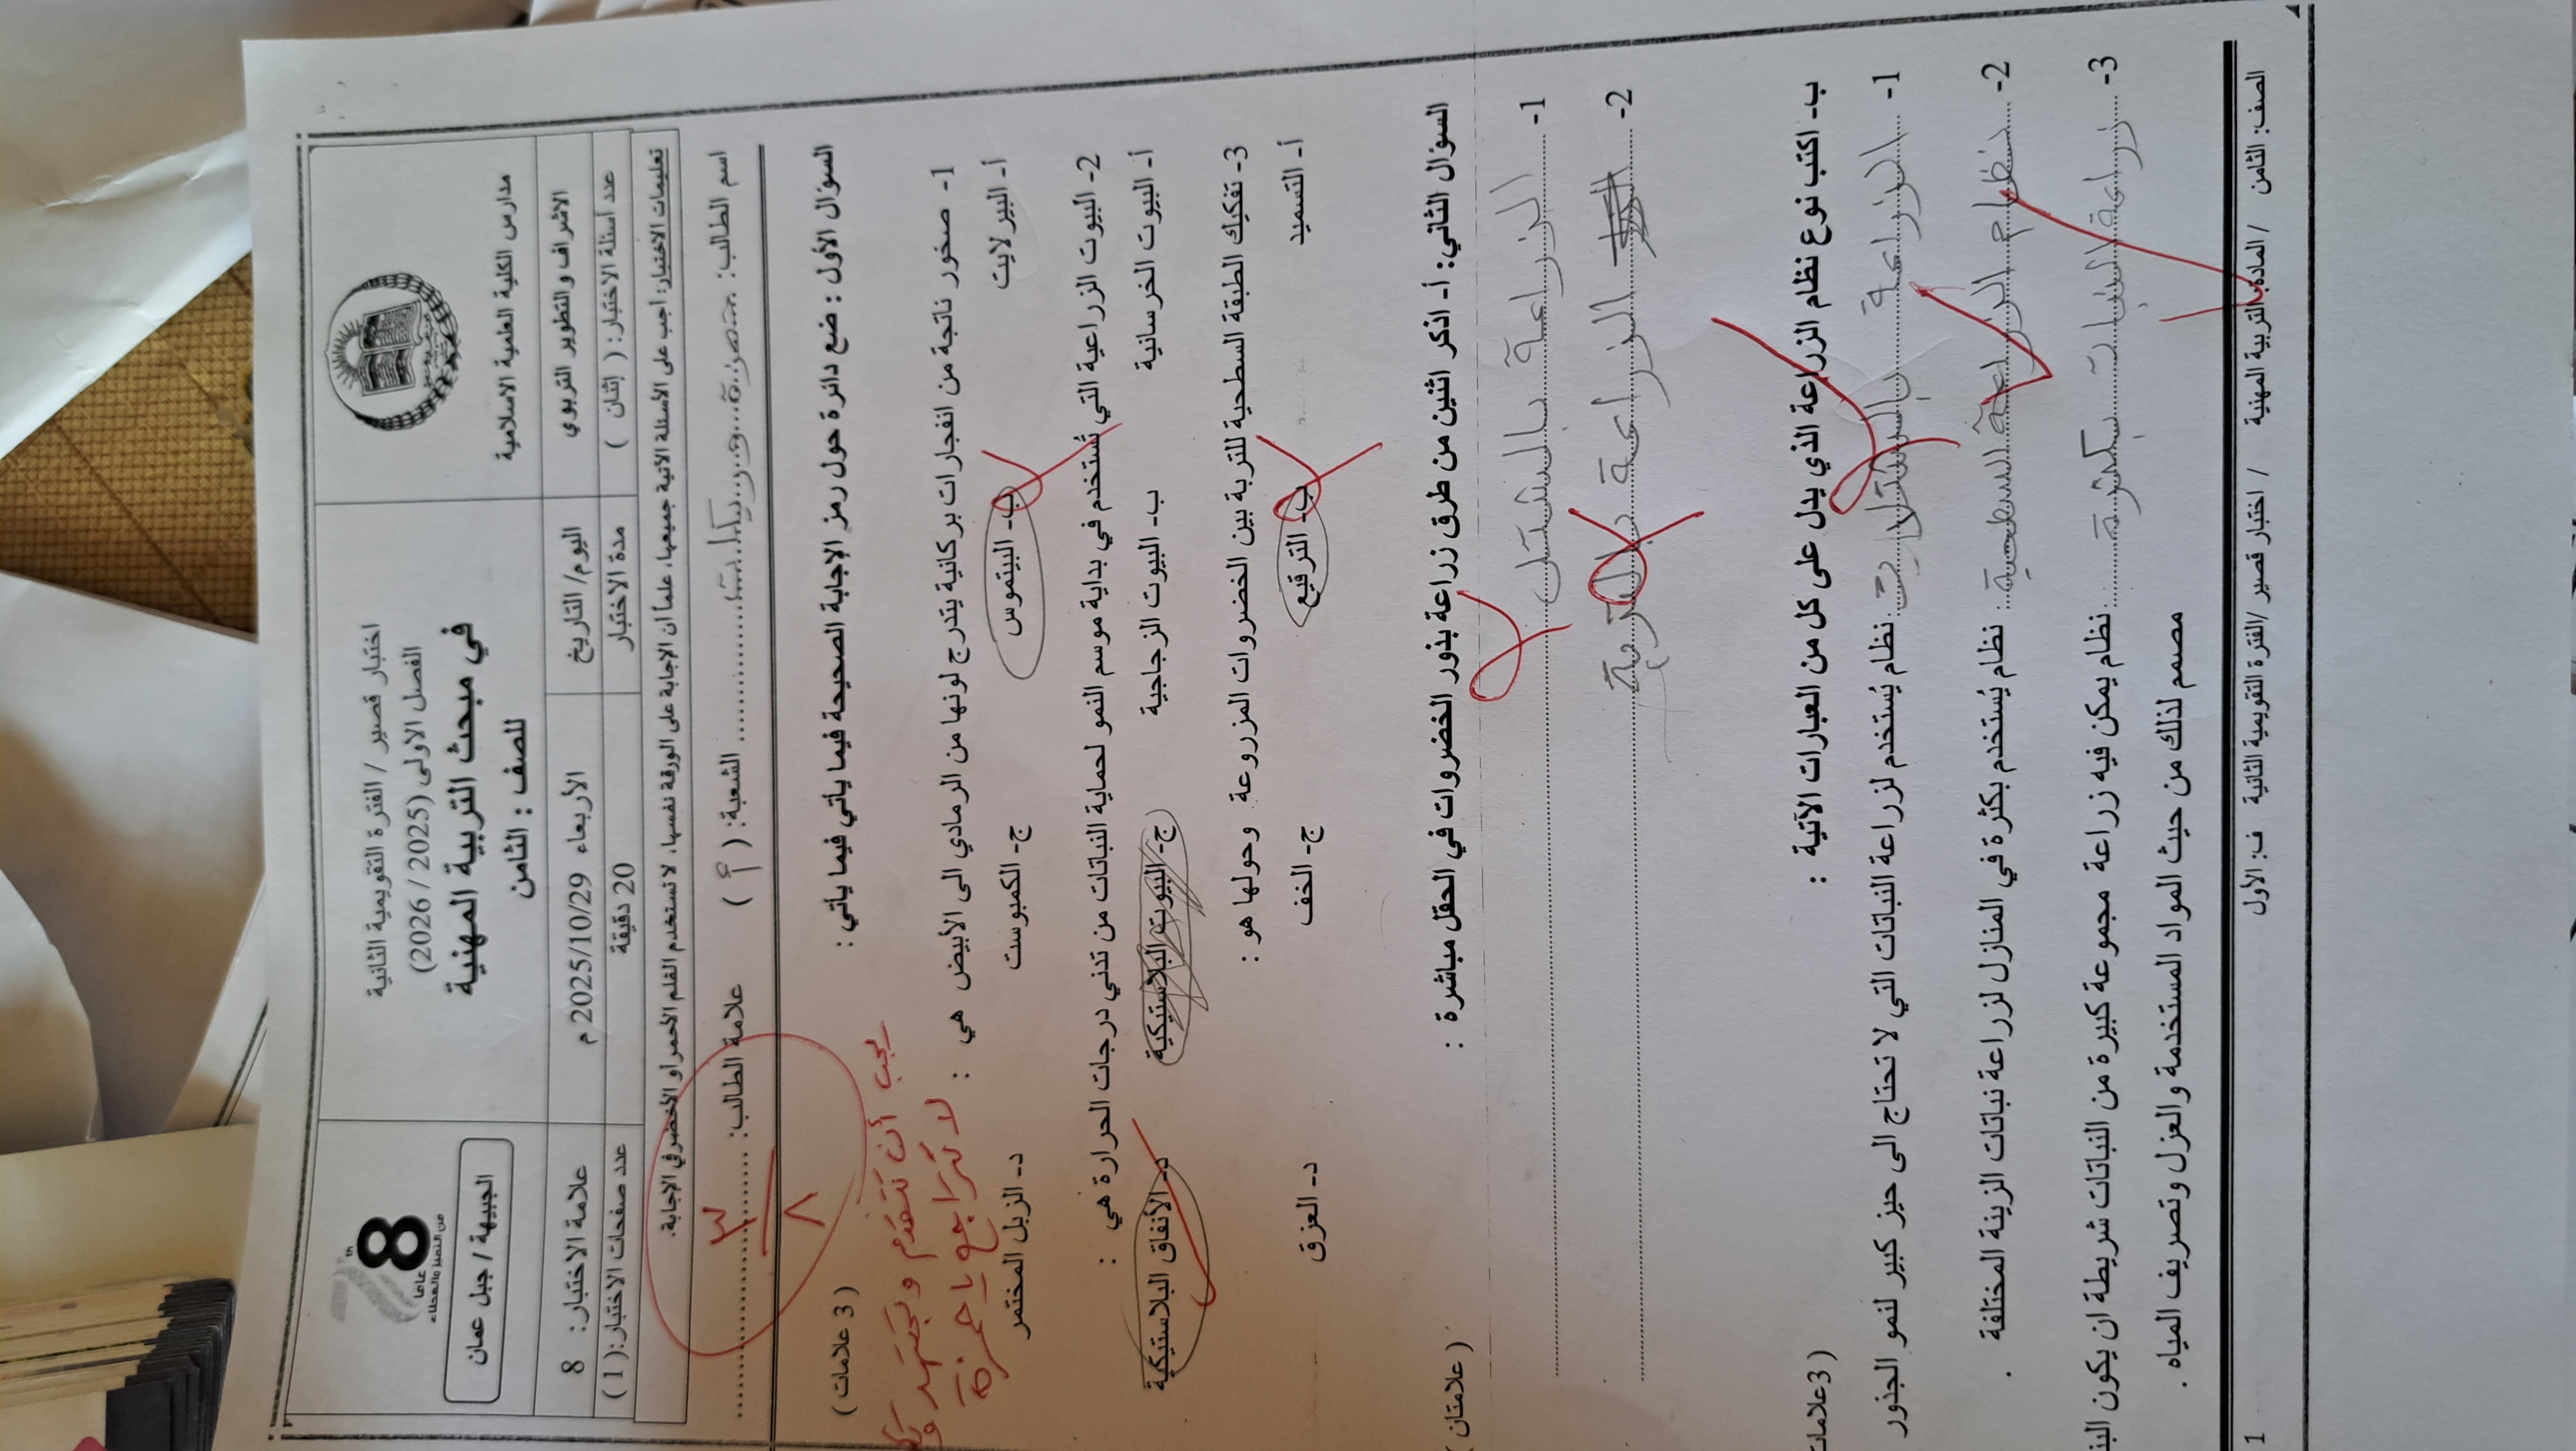 مدارس الكلية العلمية الاسلامية
اختبار قصير / الفترة التقويمية الثانية
الفصل الاولى (2025 / 2026)
في مبحث التربية المهنية
للصف : الثامن
78 th
عاما
من التميز والعطاء
الجبيهة / جبل عمان
الاشراف والتطوير التربوي
اليوم/ التاريخ
الأربعاء 2025/10/29 م
علامة الاختبار: 8
عدد أسئلة الاختبار: ( إثنان )
مدة الاختبار
20 دقيقة
عدد صفحات الاختبار: ( 1 )
تعليمات الاختبار: اجب على الأسئلة الآتية جميعها، علماً ان الإجابة على الورقة نفسها، لا تستخدم القلم الأحمر او الأخضر في الإجابة.
اسم الطالب: حمزة الشعبة: ( أ ) علامة الطالب: ٣/٨
السؤال الأول : ضع دائرة حول رمز الإجابة الصحيحة فيما يأتي فيما يأتي : ( 3 علامات )
يجب أن تتقدم وتجتهد
لا تتراجع يا حمزة
1- صخور ناتجة من انفجارات بركانية يتدرج لونها من الرمادي الى الأبيض هي :
أ- البيرلايت ب- البيتموس ج- الكمبوست د- الزبل المختمر
2- البيوت الزراعية التي تُستخدم في بداية موسم النمو لحماية النباتات من تدني درجات الحرارة هي :
أ- البيوت الخرسانية ب- البيوت الزجاجية ج- البيوت البلاستيكية د- الأنفاق البلاستيكية
3- تفكيك الطبقة السطحية للتربة بين الخضروات المزروعة وحولها هو :
أ- التسميد ب- الترقيع ج- الخف د- العزق
السؤال الثاني : أ- اذكر اثنين من طرق زراعة بذور الخضروات في الحقل مباشرة : ( علامتان )
1- الزراعة بالشتل
2- الزراعة بالتربة
ب- اكتب نوع نظام الزراعة الذي يدل على كل من العبارات الآتية : (3علامات
1- الزراعة بالستلات نظام يُستخدم لزراعة النباتات التي لا تحتاج الى حيز كبير لنمو الجذور
2- نظام الزراعة السطحية نظام يُستخدم بكثرة في المنازل لزراعة نباتات الزينة المختلفة .
3- زراعة النباتات بكثرة نظام يمكن فيه زراعة مجموعة كبيرة من النباتات شريطة ان يكون
مصمم لذلك من حيث المواد المستخدمة والعزل وتصريف المياه .
الصف: الثامن / المادة: التربية المهنية / اختبار قصير /الفترة التقويمية الثانية ف: الأول 1